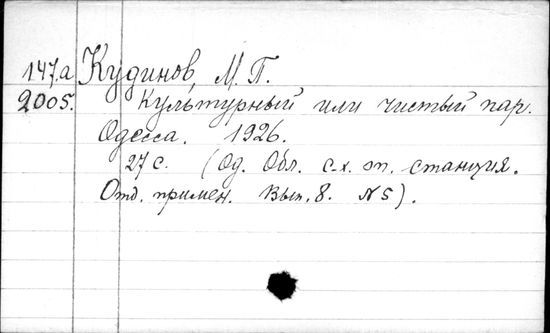 147.a Кудинов, М. П.
2005. Культурный или чистый пар.
Одесса. 1926.
27 с. (Од. Обл. с-х. оп. станция.
Отд. примен. Вып. 8. №5).